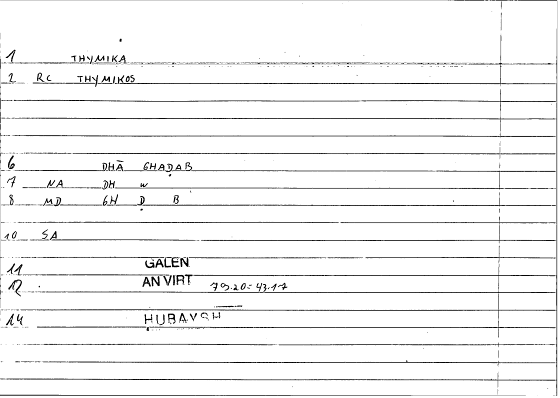 1 THYMIKA
2 RC THYMIKOS
6 DHĀ GHAḌAB
7 NA DH W
8 MD GH Ḍ B
10 SA
11 GALEN
12 AN VIRT 79.20 = 43.17
14 ḤUBAYSH